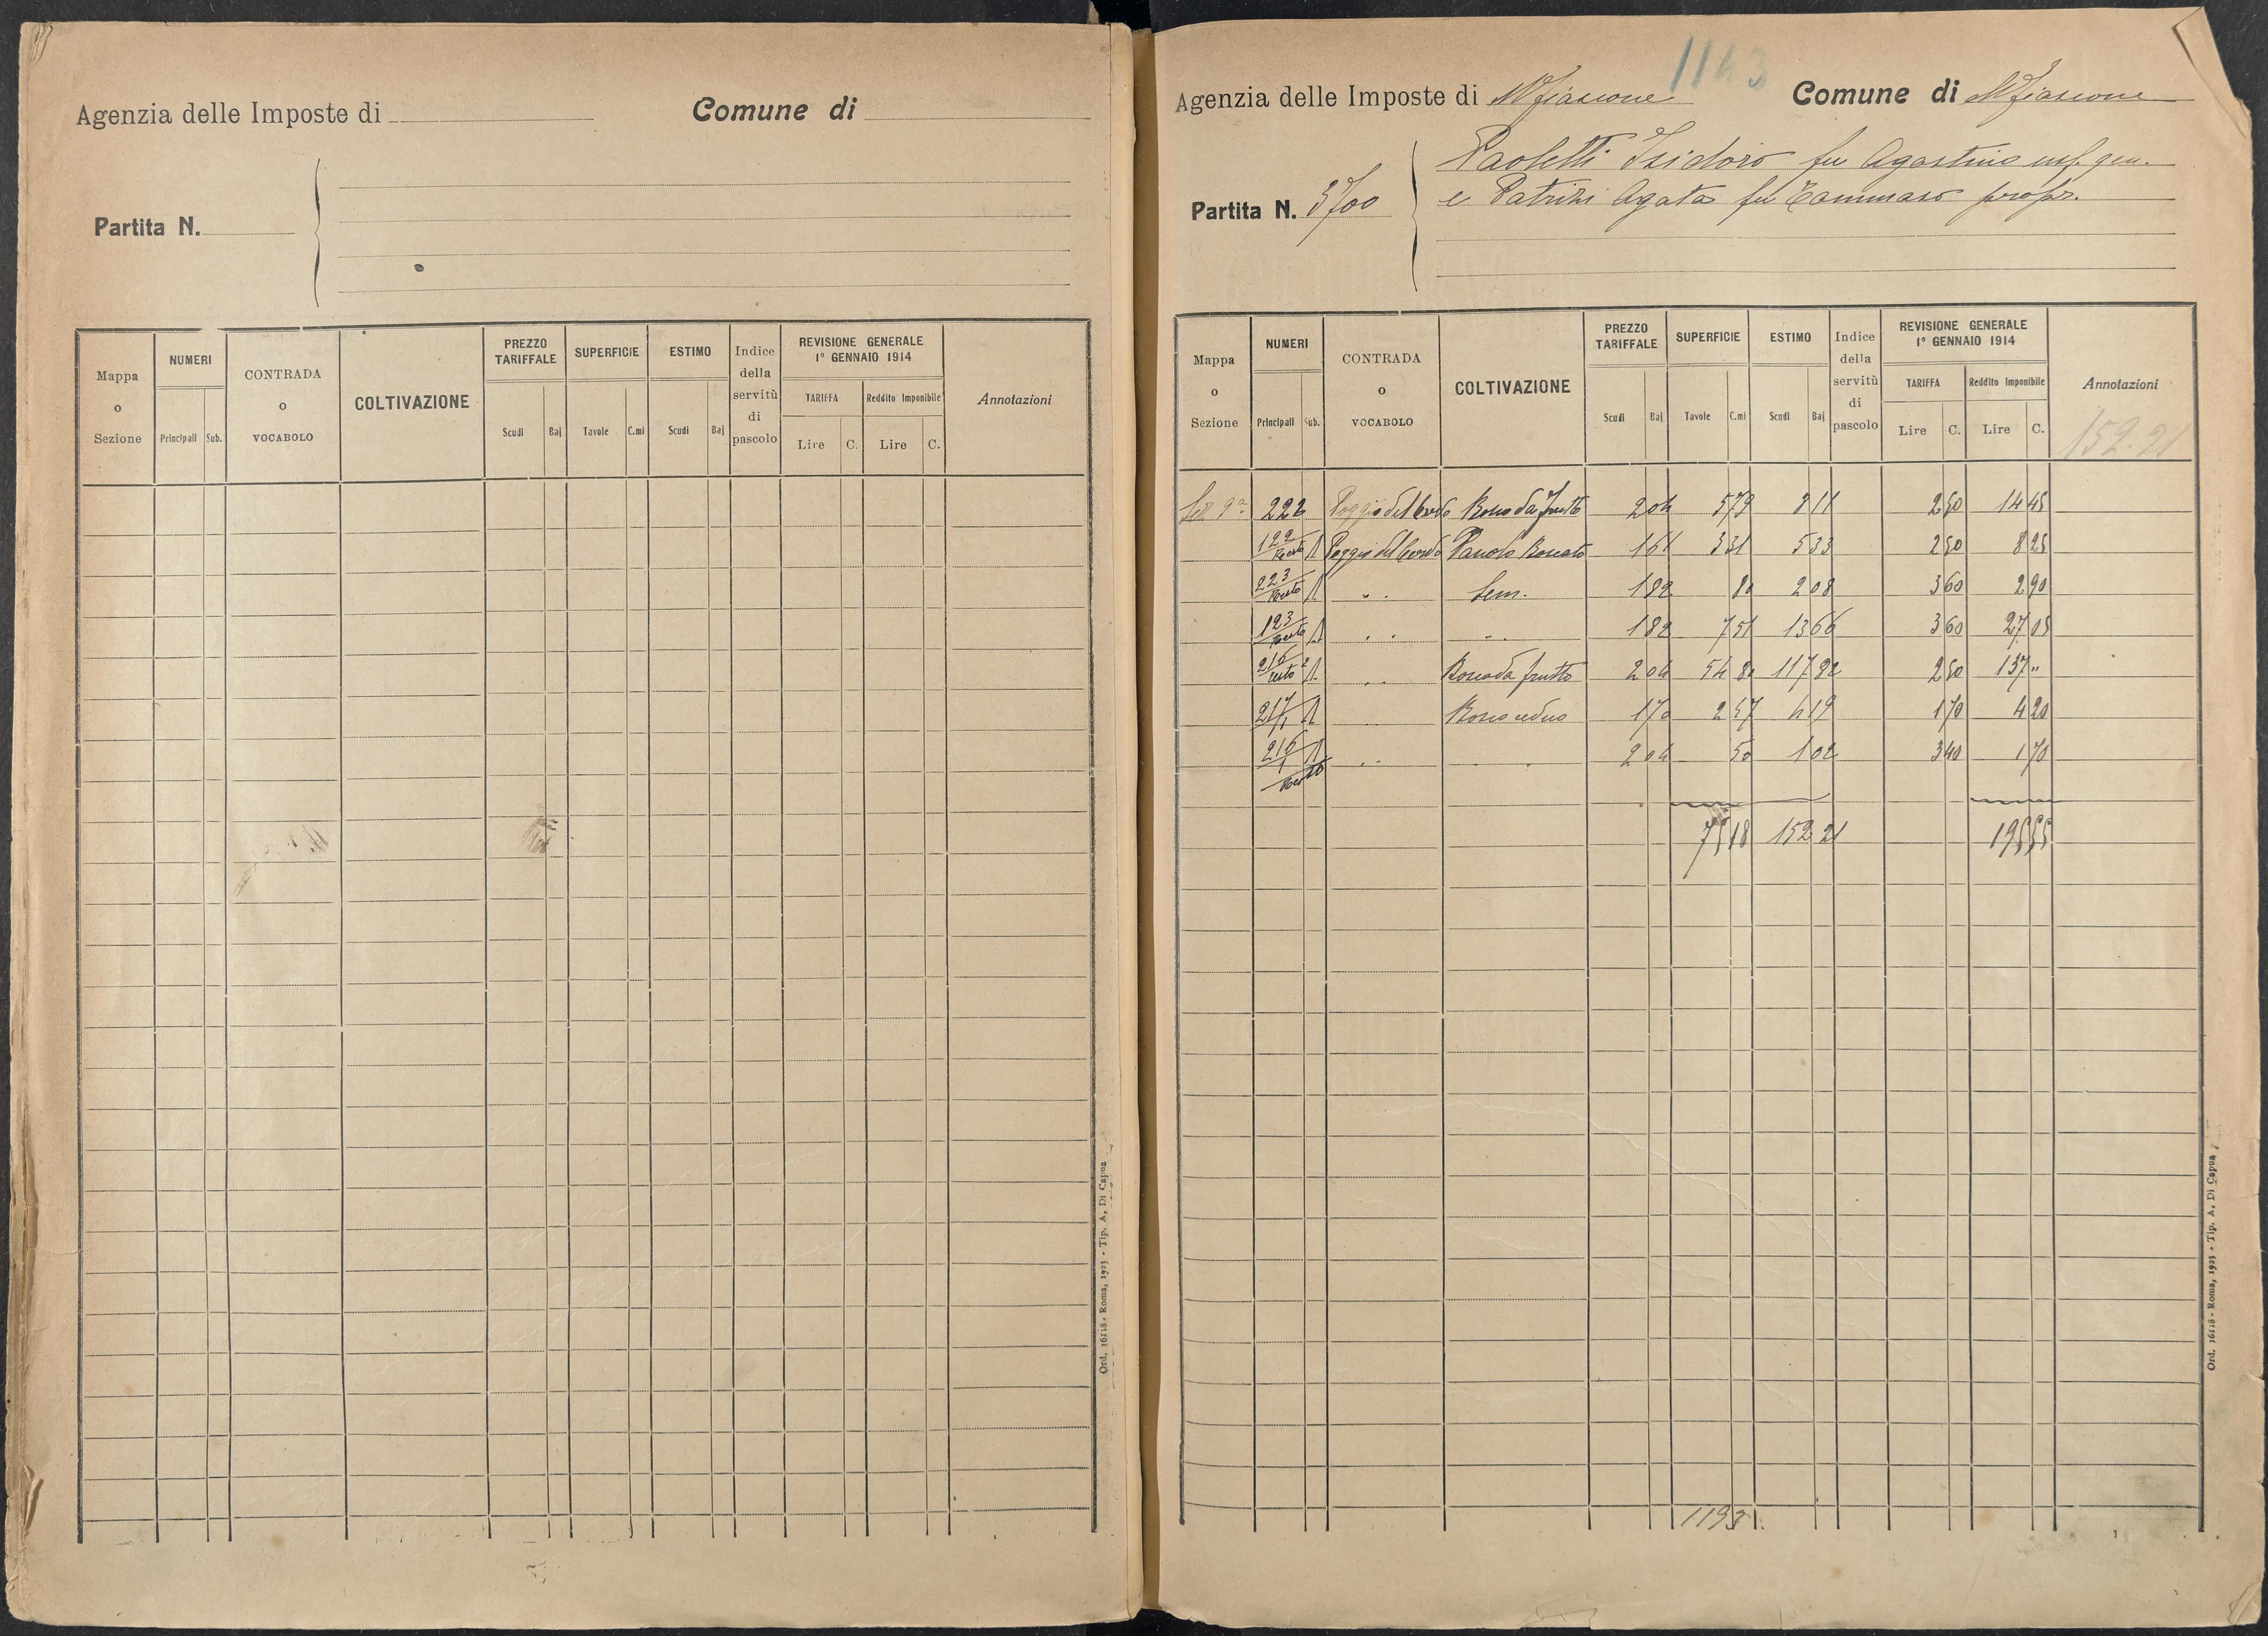 Agenzia delle Imposte di
Comune di
Partita N.
Mappa o Sezione
NUMERI
Principali Sub.
CONTRADA o VOCABOLO
COLTIVAZIONE
PREZZO TARIFFALE
Scudi Baj
SUPERFICIE
Tavole C.mi
ESTIMO
Scudi Baj
Indice della servitù di pascolo
REVISIONE GENERALE
1° GENNAIO 1914
TARIFFA
Lire C.
Reddito Imponibile
Lire C.
Annotazioni
Ord. 16118 - Roma, 1923 - Tip. A. Di Capua
1143
Agenzia delle Imposte di Mfiascone
Comune di Mfiascone
Partita N. 3700
Paoletti Isidoro fu Agostino usf. gen.
e Patrizi Agata fu Tommaso propr.
Mappa o Sezione
NUMERI
Principali Sub.
CONTRADA o VOCABOLO
COLTIVAZIONE
PREZZO TARIFFALE
Scudi Baj
SUPERFICIE
Tavole C.mi
ESTIMO
Scudi Baj
Indice della servitù di pascolo
REVISIONE GENERALE
1° GENNAIO 1914
TARIFFA
Lire C.
Reddito Imponibile
Lire C.
Annotazioni
152.21
Sez 9a 222 Poggio del Bosco da frutto 2 04 5 79 11 2 50 14 45
122 Resto Poggio del Pascolo Boscato 1 61 3 31 5 33 2 50 8 25
223 Resto " " Sem. 1 82 80 2 08 3 60 2 90
123 Resto " " " 1 82 7 51 13 66 3 60 27 05
216 resto 2 " " Bosco da frutto 2 04 54 80 117 82 2 50 137 "
217/1 Bosco ceduo 1 70 2 47 4 19 1 70 4 20
216/1 Resto " " " " 2 04 50 1 02 3 40 1 70
75 18 152 21 195 55
1193
Ord. 16118 - Roma, 1923 - Tip. A. Di Capua